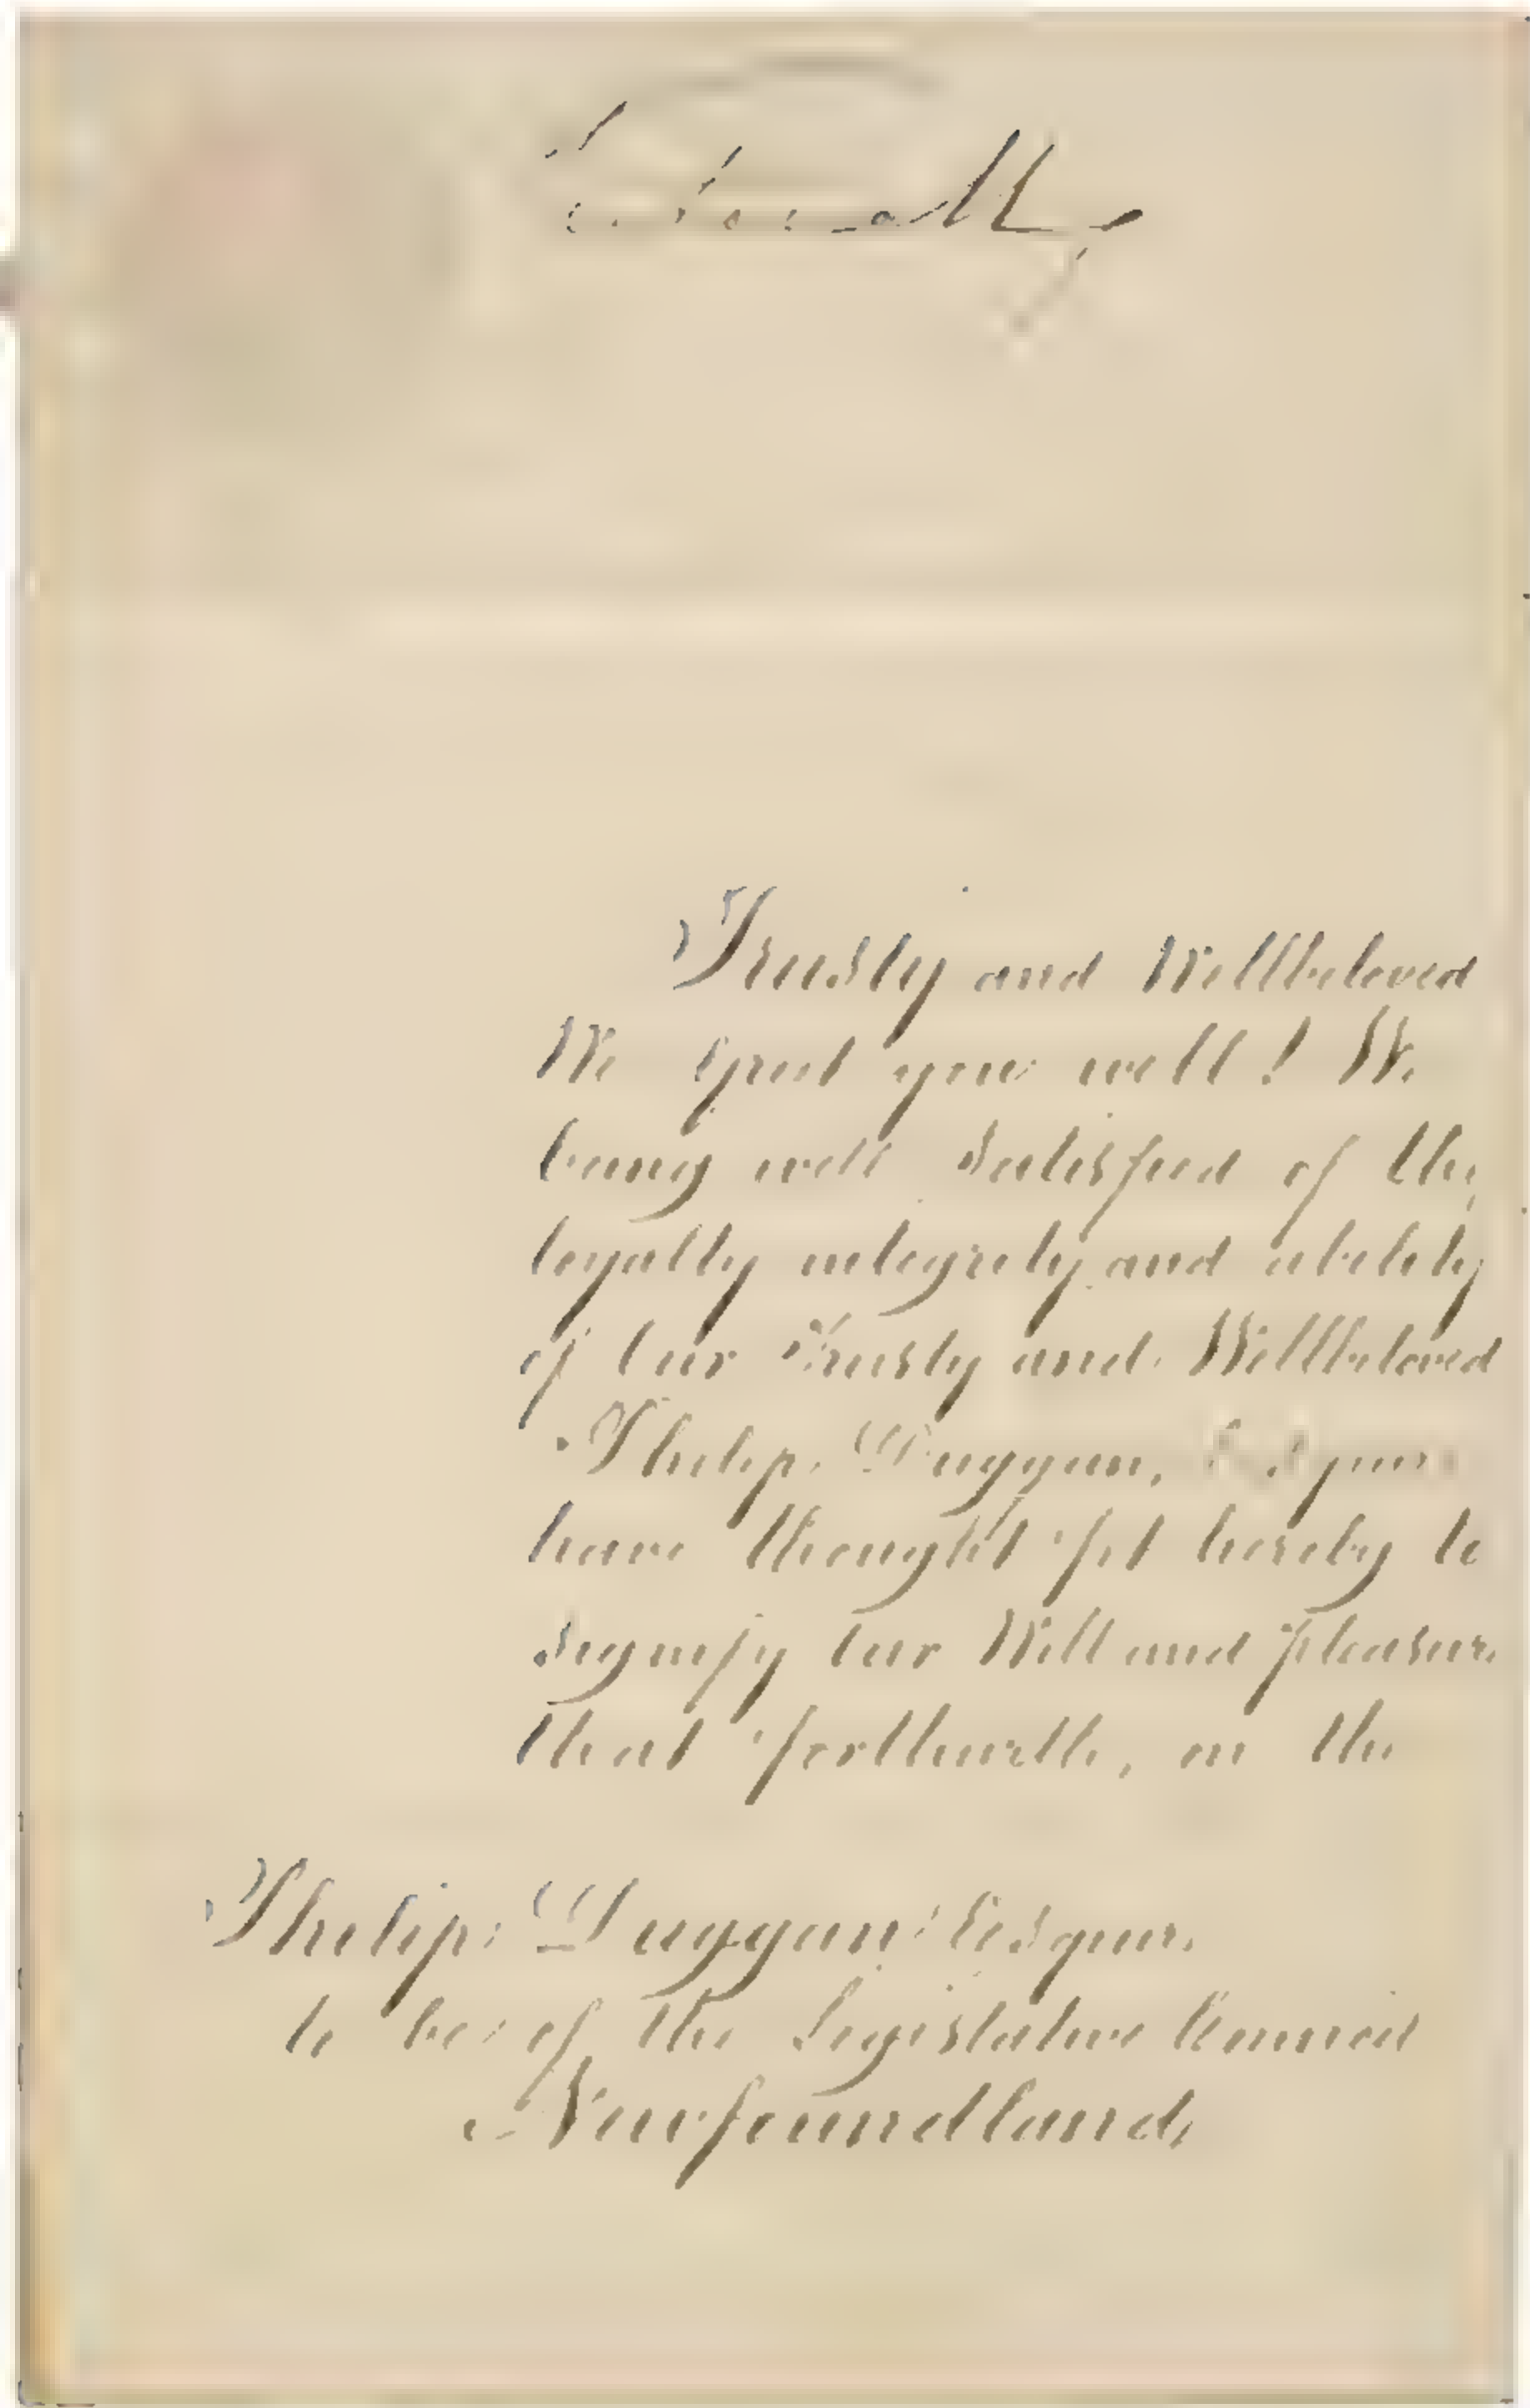 Trusty and Wellbeloved
We Greet you well! We
being well Satisfied of the
loyalty integrity and ability
of Our Trusty and Wellbeloved
Philip Duggan, Esquire
have thought fit hereby to
Signify Our Will and pleasure
that forthwith, on the
Philip Duggan Esquire
to be of the Legislative Council
Newfoundland